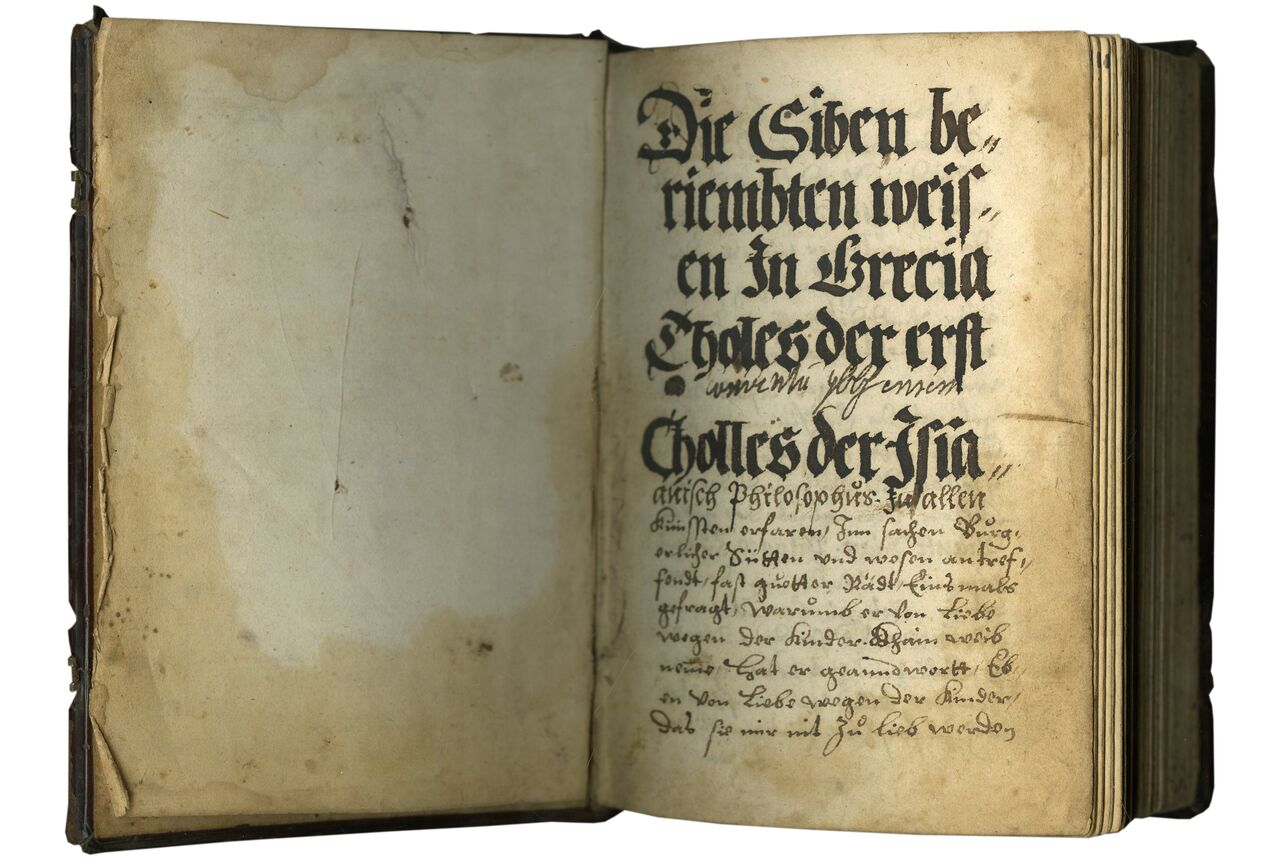 Die Siben be„
riembten weis„
en In Grecia
Tholes der erst
Tholles der Isia„
anisch Philosophůs. Zu allen
Kunssten erfaren, Inn sachen Bůrg„
erlicher Sÿtten vnd wesen antref„
fendt, fast guetter Rädt, Einsmals
gefragt, warůmb er von Liebe
wegen der Kinder Khain weib
neme, hat er geanndwortt, Eb„
en von Liebe wegen der Kinder,
das sie mir nit Zů lieb werden